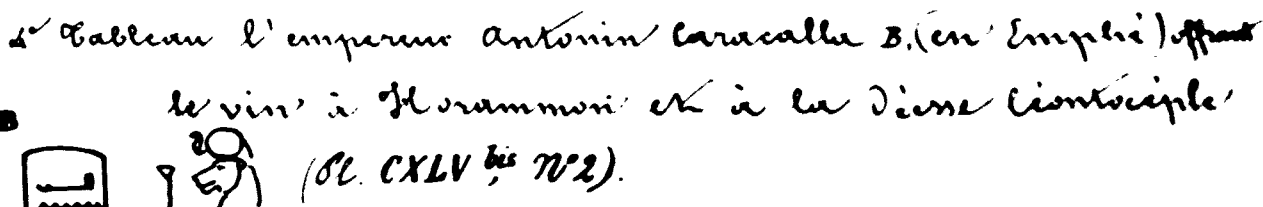 4e Tableau l'empereur Antonin Caracalla B, (en Emphé) offrant
le vin à Horammon et à la Déesse Léontocéphale
B
(Pl. CXLV bis N°2).